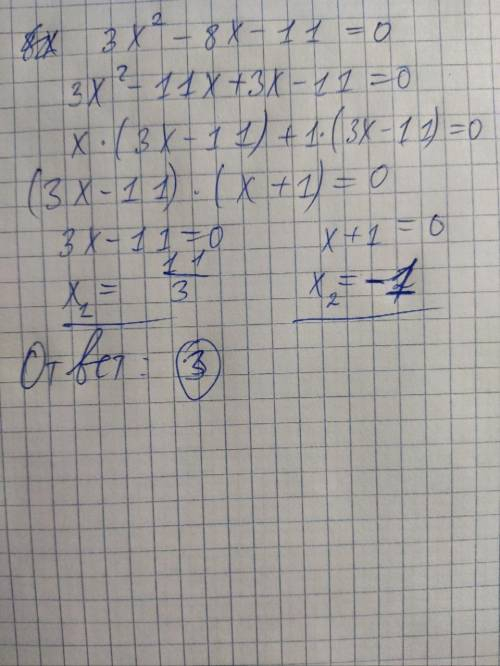 3x² - 8x - 11 = 0
3x² - 11x + 3x - 11 = 0
x · (3x - 11) + 1 · (3x - 11) = 0
(3x - 11) · (x + 1) = 0
3x - 11 = 0
x₂ = 11/3
x + 1 = 0
x₂ = -1
Ответ: 3